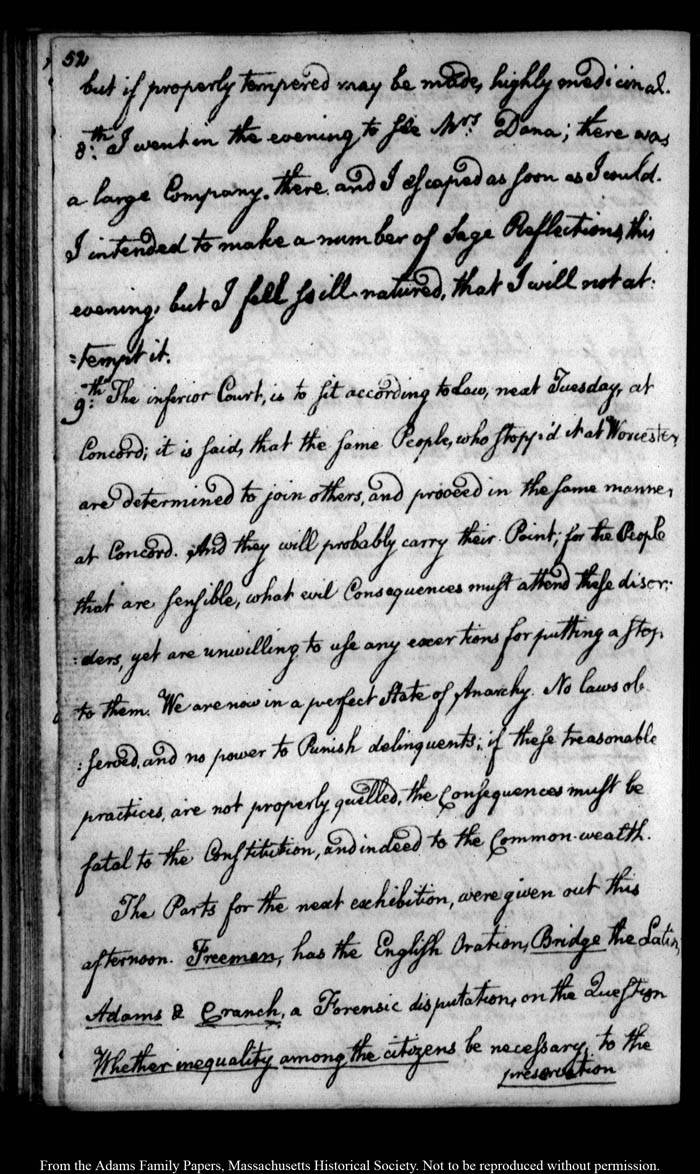 52
but if properly tempered may be made, highly medicinal.
8:th I went in the evening to see Mrs. Dana; there was
a large Company, there and I escaped as soon as I could.
I intended to make a number of Sage Reflections, this
evening, but I fell so ill-natured, that I will not at:
:tempt it.
9:th The inferior Court, is to sit according to law, next Tuesday, at
Concord; it is said, that the same People, who stopp'd it at Worcester,
are determined to join others, and proceed in the same manner
at Concord. And they will probably carry their Point; for the People
that are sensible, what evil Consequences must attend these disor:
:ders, yet are unwilling to use any exertions for putting a stop
to them. We are now in a perfect State of Anarchy. No laws ob
:served, and no power to Punish delinquents; if these treasonable
practices, are not properly quelled, the Consequences must be
fatal to the Constitution, and indeed to the Common-wealth.
The Parts for the next exhibition, were given out this
afternoon. Freeman, has the English Oration, Bridge the Latin,
Adams & Cranch, a Forensic disputation, on the Question
Whether inequality among the citizens be necessary, to the
preservation
From the Adams Family Papers, Massachusetts Historical Society. Not to be reproduced without permission.